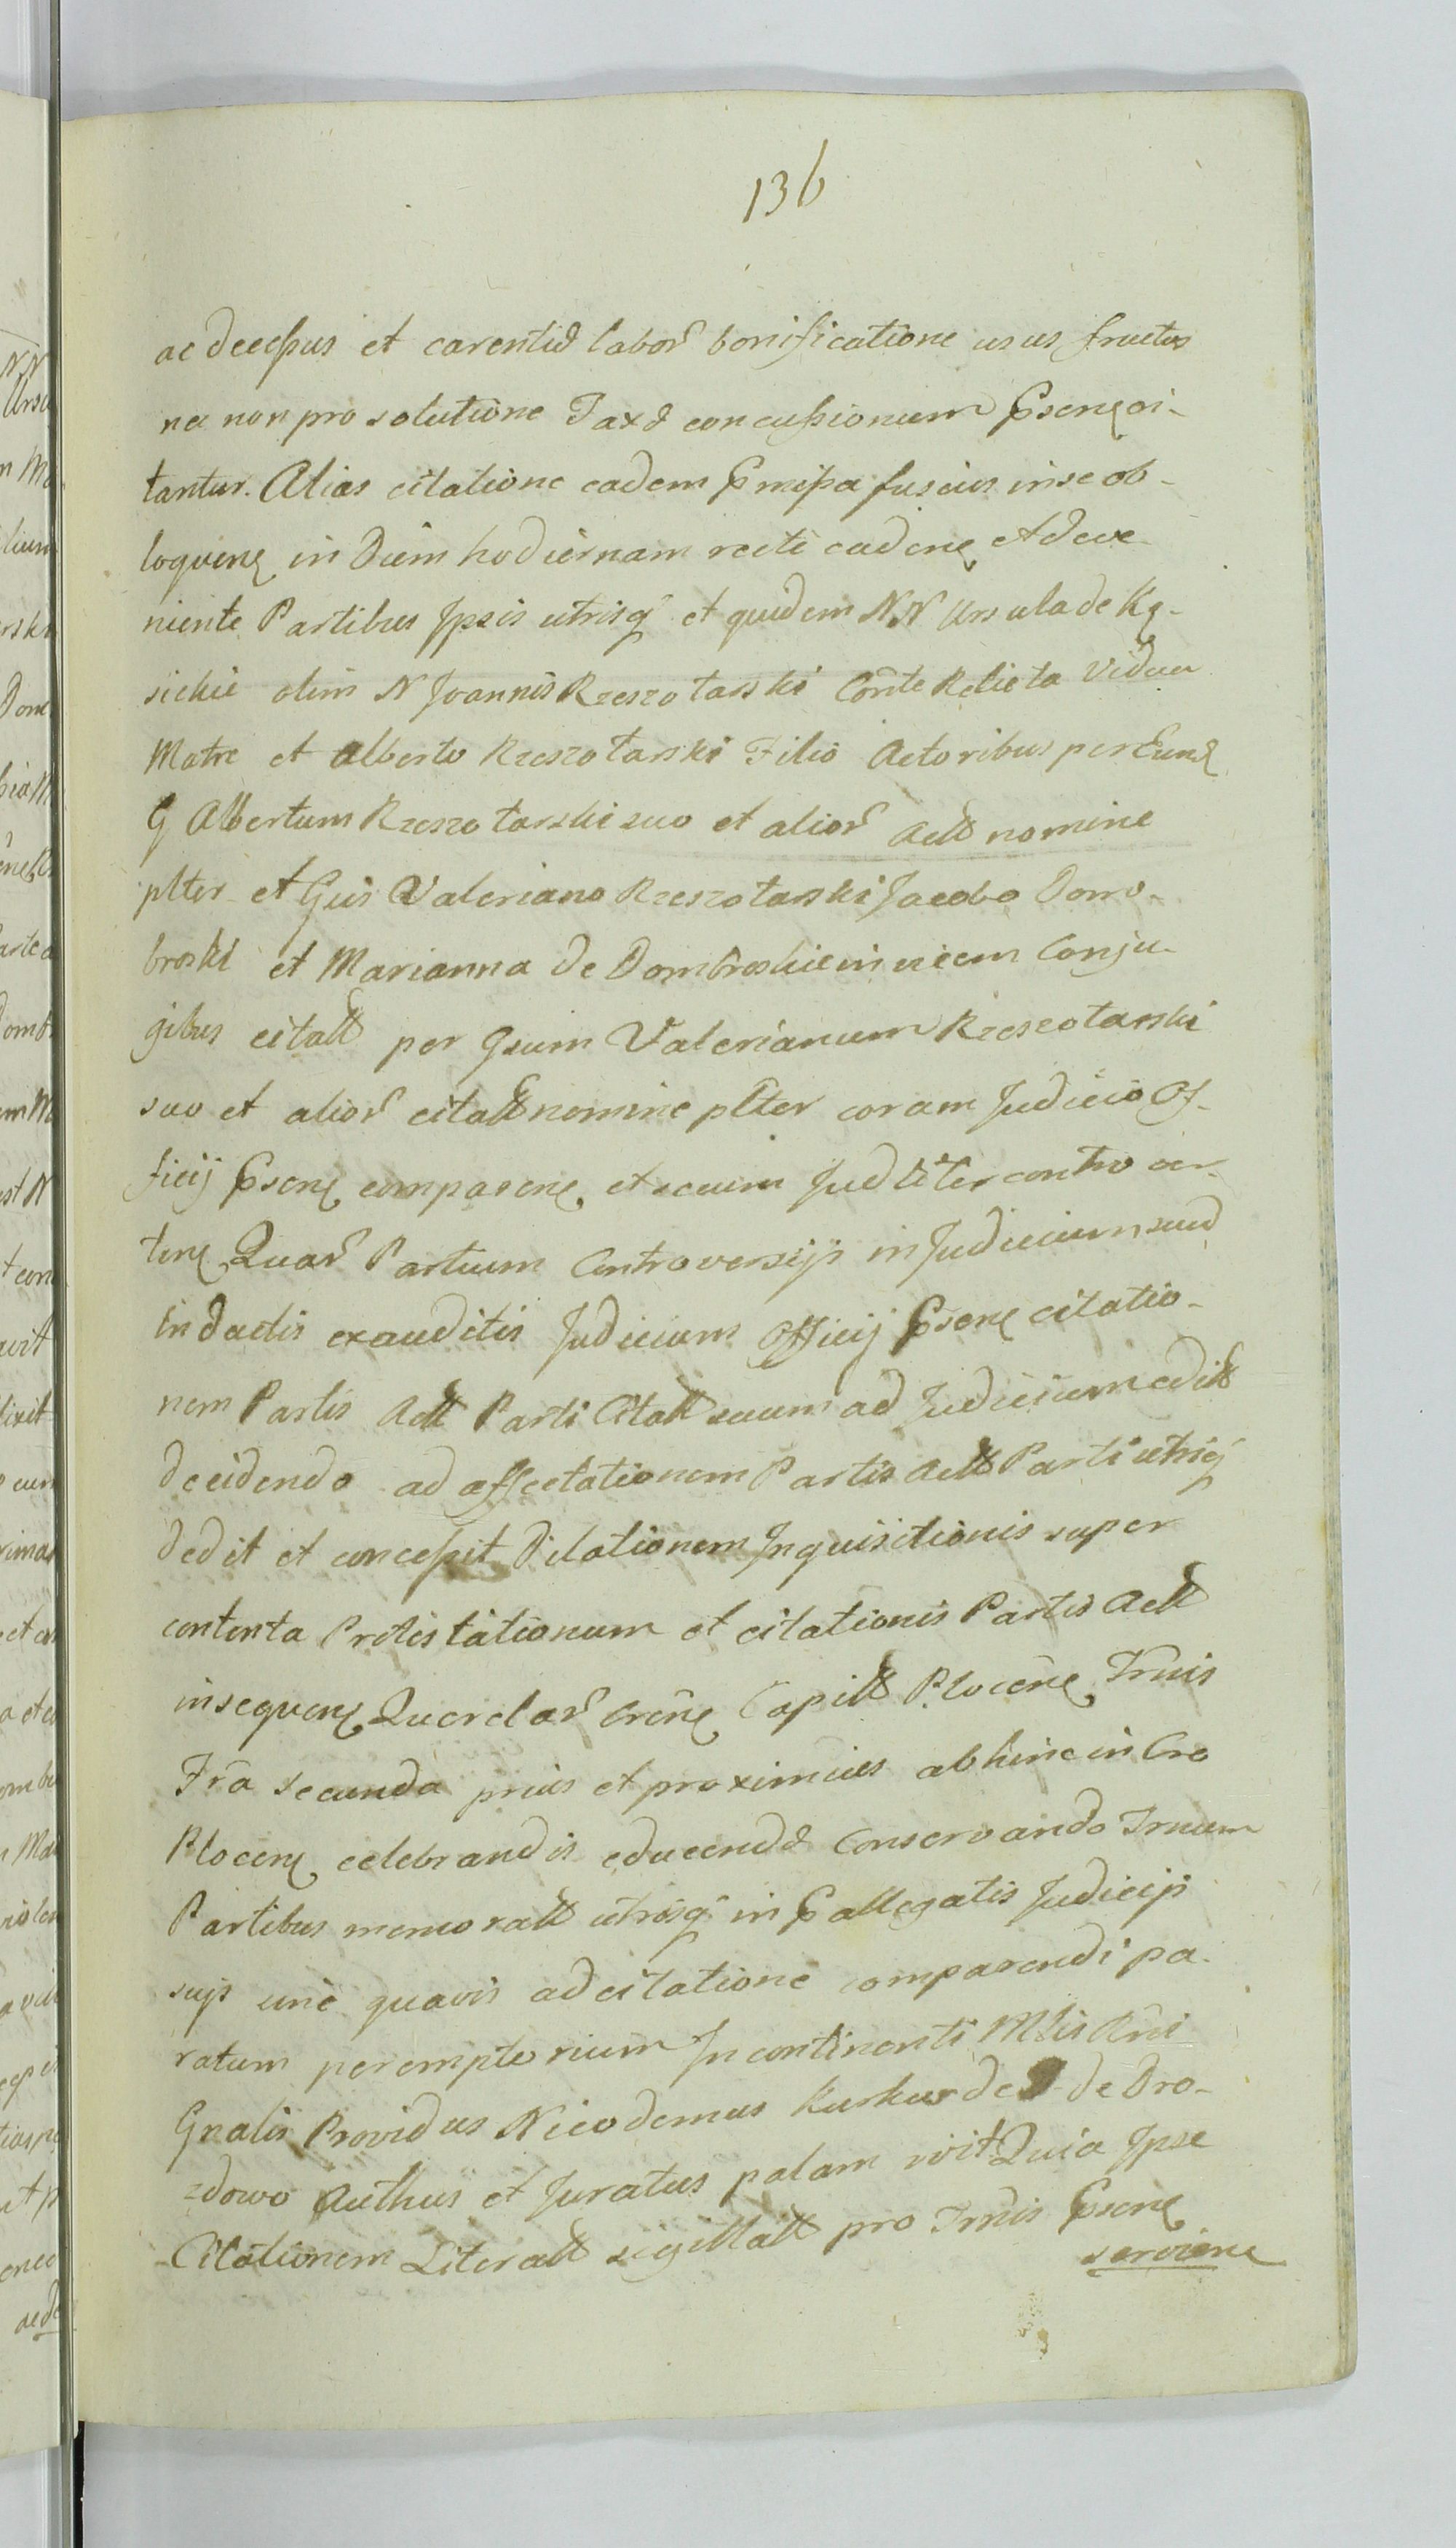 136
ac decessus et carentia labor bonificatione usus fructus
nec non pro solutione Taxa concussionum Psens ci-
tantur. Alias citatione eadem Pmissa fusius in se ob-
loquens in Diem hodiernam recte cadens et deve-
niente Partibus Ipsis utrisq et quidem NN Ursula de Kę-
sickie olim N Joannis Rzeszotarski Conte Relicta Vidua
Matre et Alberto Rzeszotarski Filio Actoribus per Eund
G Albertum Rzeszotarski suo et alior Actt nomine
plter et Gsis Valeriano Rzeszotarski Jacobo Dom-
broski et Marianna de Dombroskie invicem Conju-
gibus citatt per Gsum Valerianum Rzeszotarski
suo et alior citatt nomine plter coram Judicio Of-
ficij Psens comparens et secum Judltiter controver-
tens Quar Partium Controversijs in Judicium sua
Indactis exauditis Judicium Officij Psens citatio-
nem Partis Actt Parti Citatt suum ad Judicium editt
decidendo ad affectationem Partis Actt Parti utriq
dedit et concessit Dilationem Inquisitionis super
contenta Protestationum et citationis Partis Actt
insequens Querelar Crens Capitt Plocens Trnis
Fra secunda prius et proximius abhinc in Cro
Plocens celebrandis educenda Conservando Trnum
Partibus memoratt utrisq in Pallegatis Judicijs
suis sine quavis adcitatione comparendi pa-
ratum peremptorium In continenti Mtis Rni
Gnalis Providus Nicodemus de Dro-
zdowo Authus et Juratus palam rvit Quia Ipse
Citationem Literatt sigillatt pro Trnis Psens
serviens